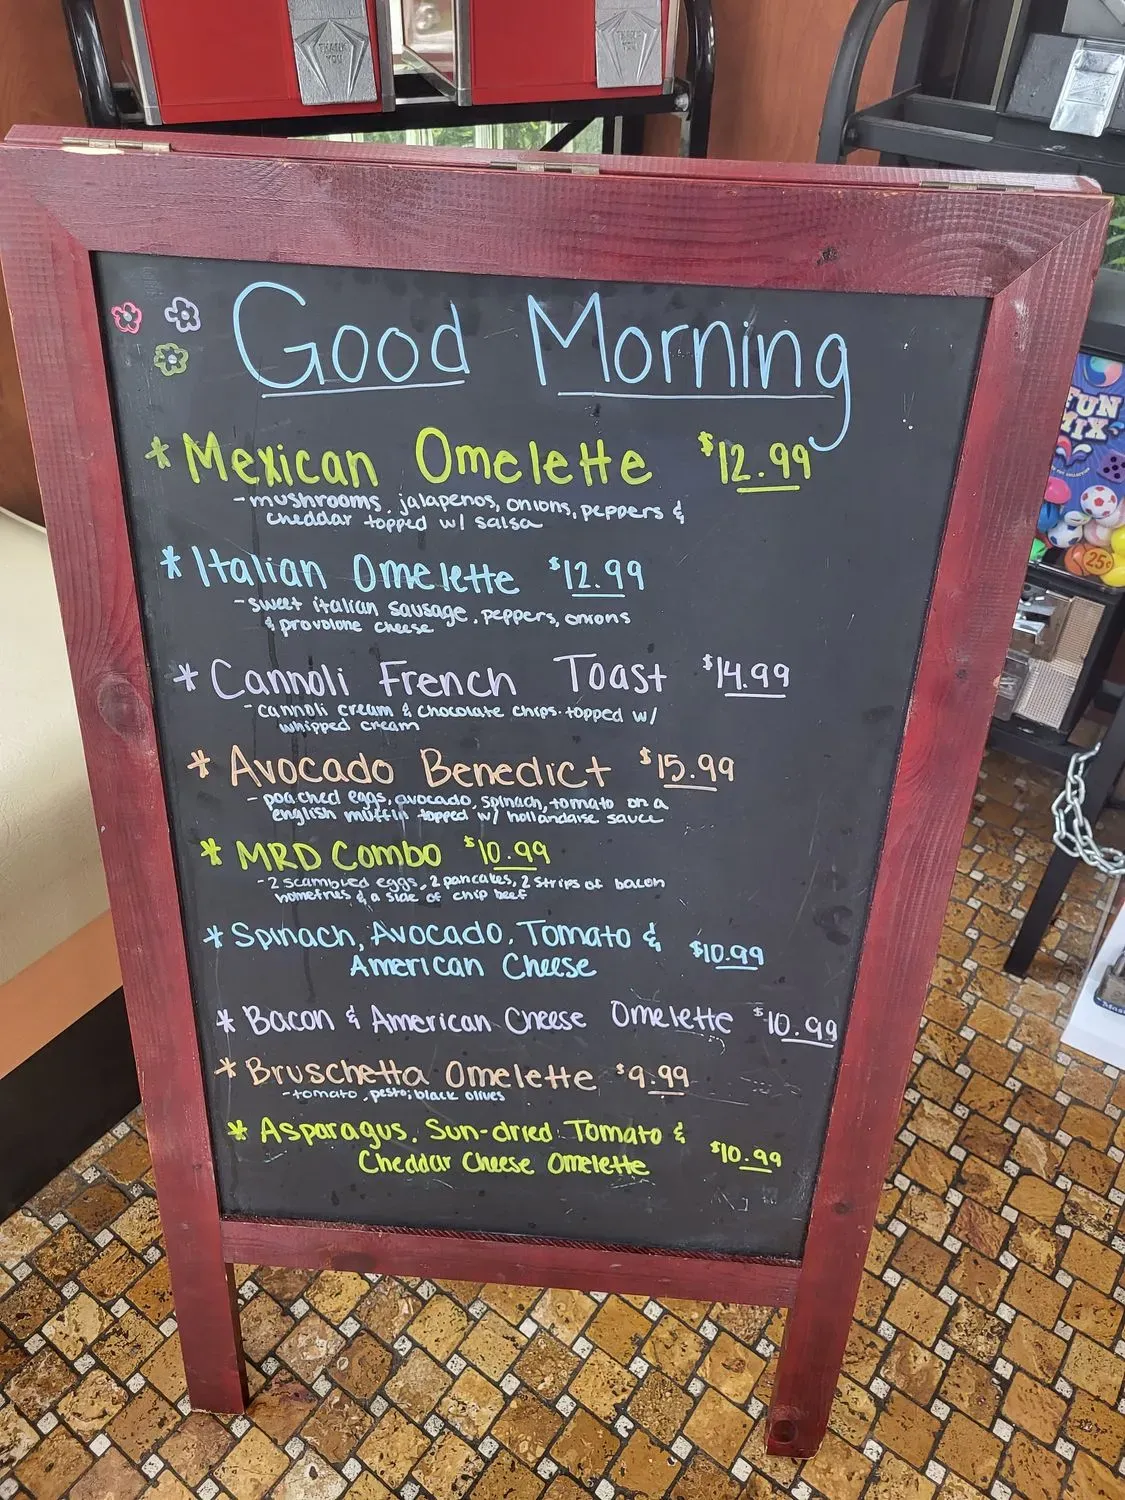 THANK YOU
THANK YOU
Good Morning
* Mexican Omelette $12.99
- mushrooms, jalapenos, onions, peppers &
cheddar topped w/ salsa
* Italian Omelette $12.99
- sweet italian sausage, peppers, onions
& provolone cheese
* Cannoli French Toast $14.99
- cannoli cream & chocolate chips. topped w/
whipped cream
* Avocado Benedict $15.99
- poached eggs, avocado, spinach, tomato on a
english muffin topped w/ hollandaise sauce
* MRD Combo $10.99
- 2 scambled eggs, 2 pancakes, 2 strips of bacon
homefries & a side of chip beef
* Spinach, Avocado, Tomato &
American Cheese $10.99
* Bacon & American Cheese Omelette $10.99
* Bruschetta Omelette $9.99
- tomato, pesto, black olives
* Asparagus, Sun-dried Tomato &
Cheddar Cheese Omelette $10.99
FUN
MIX
25¢